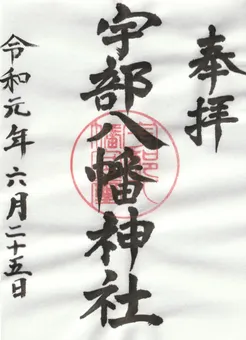 奉拝
宇部八幡神社
令和元年六月二十五日